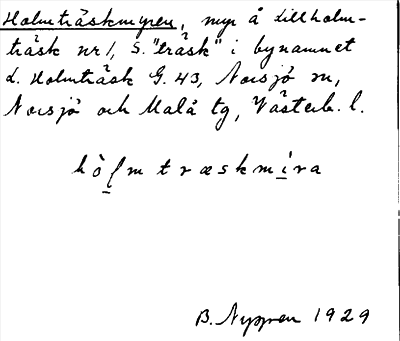 Holmträskmyren, myr å Lillholm-
träsk nr 1, S. "träsk" i bynamnet
L. Holmträsk G. 43, Norsjö sn,
Norsjö och Malå tg, Västerb. l.
hòlmtræskmira
B. Nygren 1929